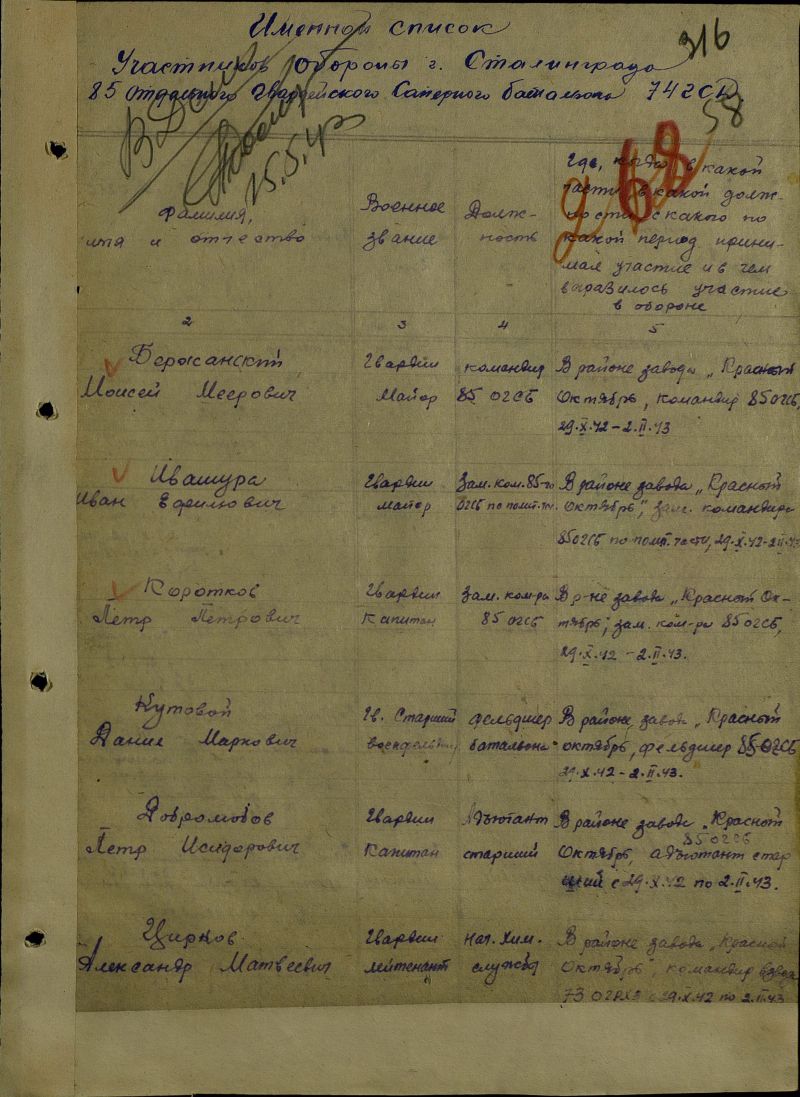 316
Именной список
Участников обороны г. Сталинграда
85 отдельного Гвардейского Саперного батальона 74 ГСД
58
15.5.43
268
Фамилия,
имя и отчество
Военное
звание
Долж-
ность
Где, когда в какой
части в какой долж-
ности с какого по
какой период прини-
мал участие и в чем
выразилось участие
в обороне
2 3 4 5
Бержанский Гвардии командир В районе завода „Красный
Моисей Меерович Майор 85 ОГСБ Октябрь", командир 85 ОГСБ,
29.X.42 – 2.II.43
Ивашура Гвардии Зам. ком. 85-го В районе завода „Красный
Иван Ефимович майор ОГСБ по полит. части Октябрь", зам. командира
85 ОГСБ по полит. части, 29.X.42-2.II.43
Коротков Гвардии Зам. ком-ра В р-не завода „Красный Ок-
Петр Петрович Капитан 85 ОГСБ тябрь", зам. ком-ра 85 ОГСБ,
29.X.42 – 2.II.43.
Кутовой Гв. Старший фельдшер В районе завода „Красный
Данил Маркович военфельдшер батальона октябрь, фельдшер 85 ОГСБ
29.X.42 – 2.II.43.
Добромобов Гвардии Адъютант В районе завода „Красный
85 ОГСБ
Петр Исидорович Капитан старший Октябрь, адъютант стар
ший с 29.X.42 по 2.II.43.
Цирков Гвардии Нач. Хим. В районе завода „Красный
Александр Матвеевич лейтенант службы Октябрь", командир взвода
73 ОГРХЗ с 29.X.42 по 2.II.43